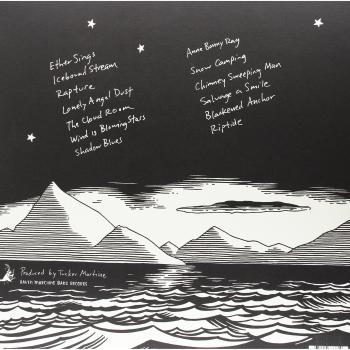 Ether Sings
Icebound Stream
Rapture
Lonely Angel Dust
The Cloud Room
Wind is Blowing Stars
Shadow Blues
Anne Bonny Rag
Snow Camping
Chimney Sweeping Man
Salvage a Smile
Blackened Anchor
Riptide
Produced by Tucker Martine